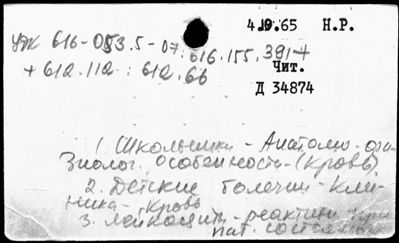 4.9.65 Н.Р.
УДК 616-053.5-07:616.155.391+
Чит.
+ 612.112 : 612.66
Д 34874
1. Школьники - Анатомо-фи-
зиолог. особенность - (кровь)
2. Детские болезни - Кли-
ника - кровь
3. Лейкоциты - реактивн. при
пат. состояниях